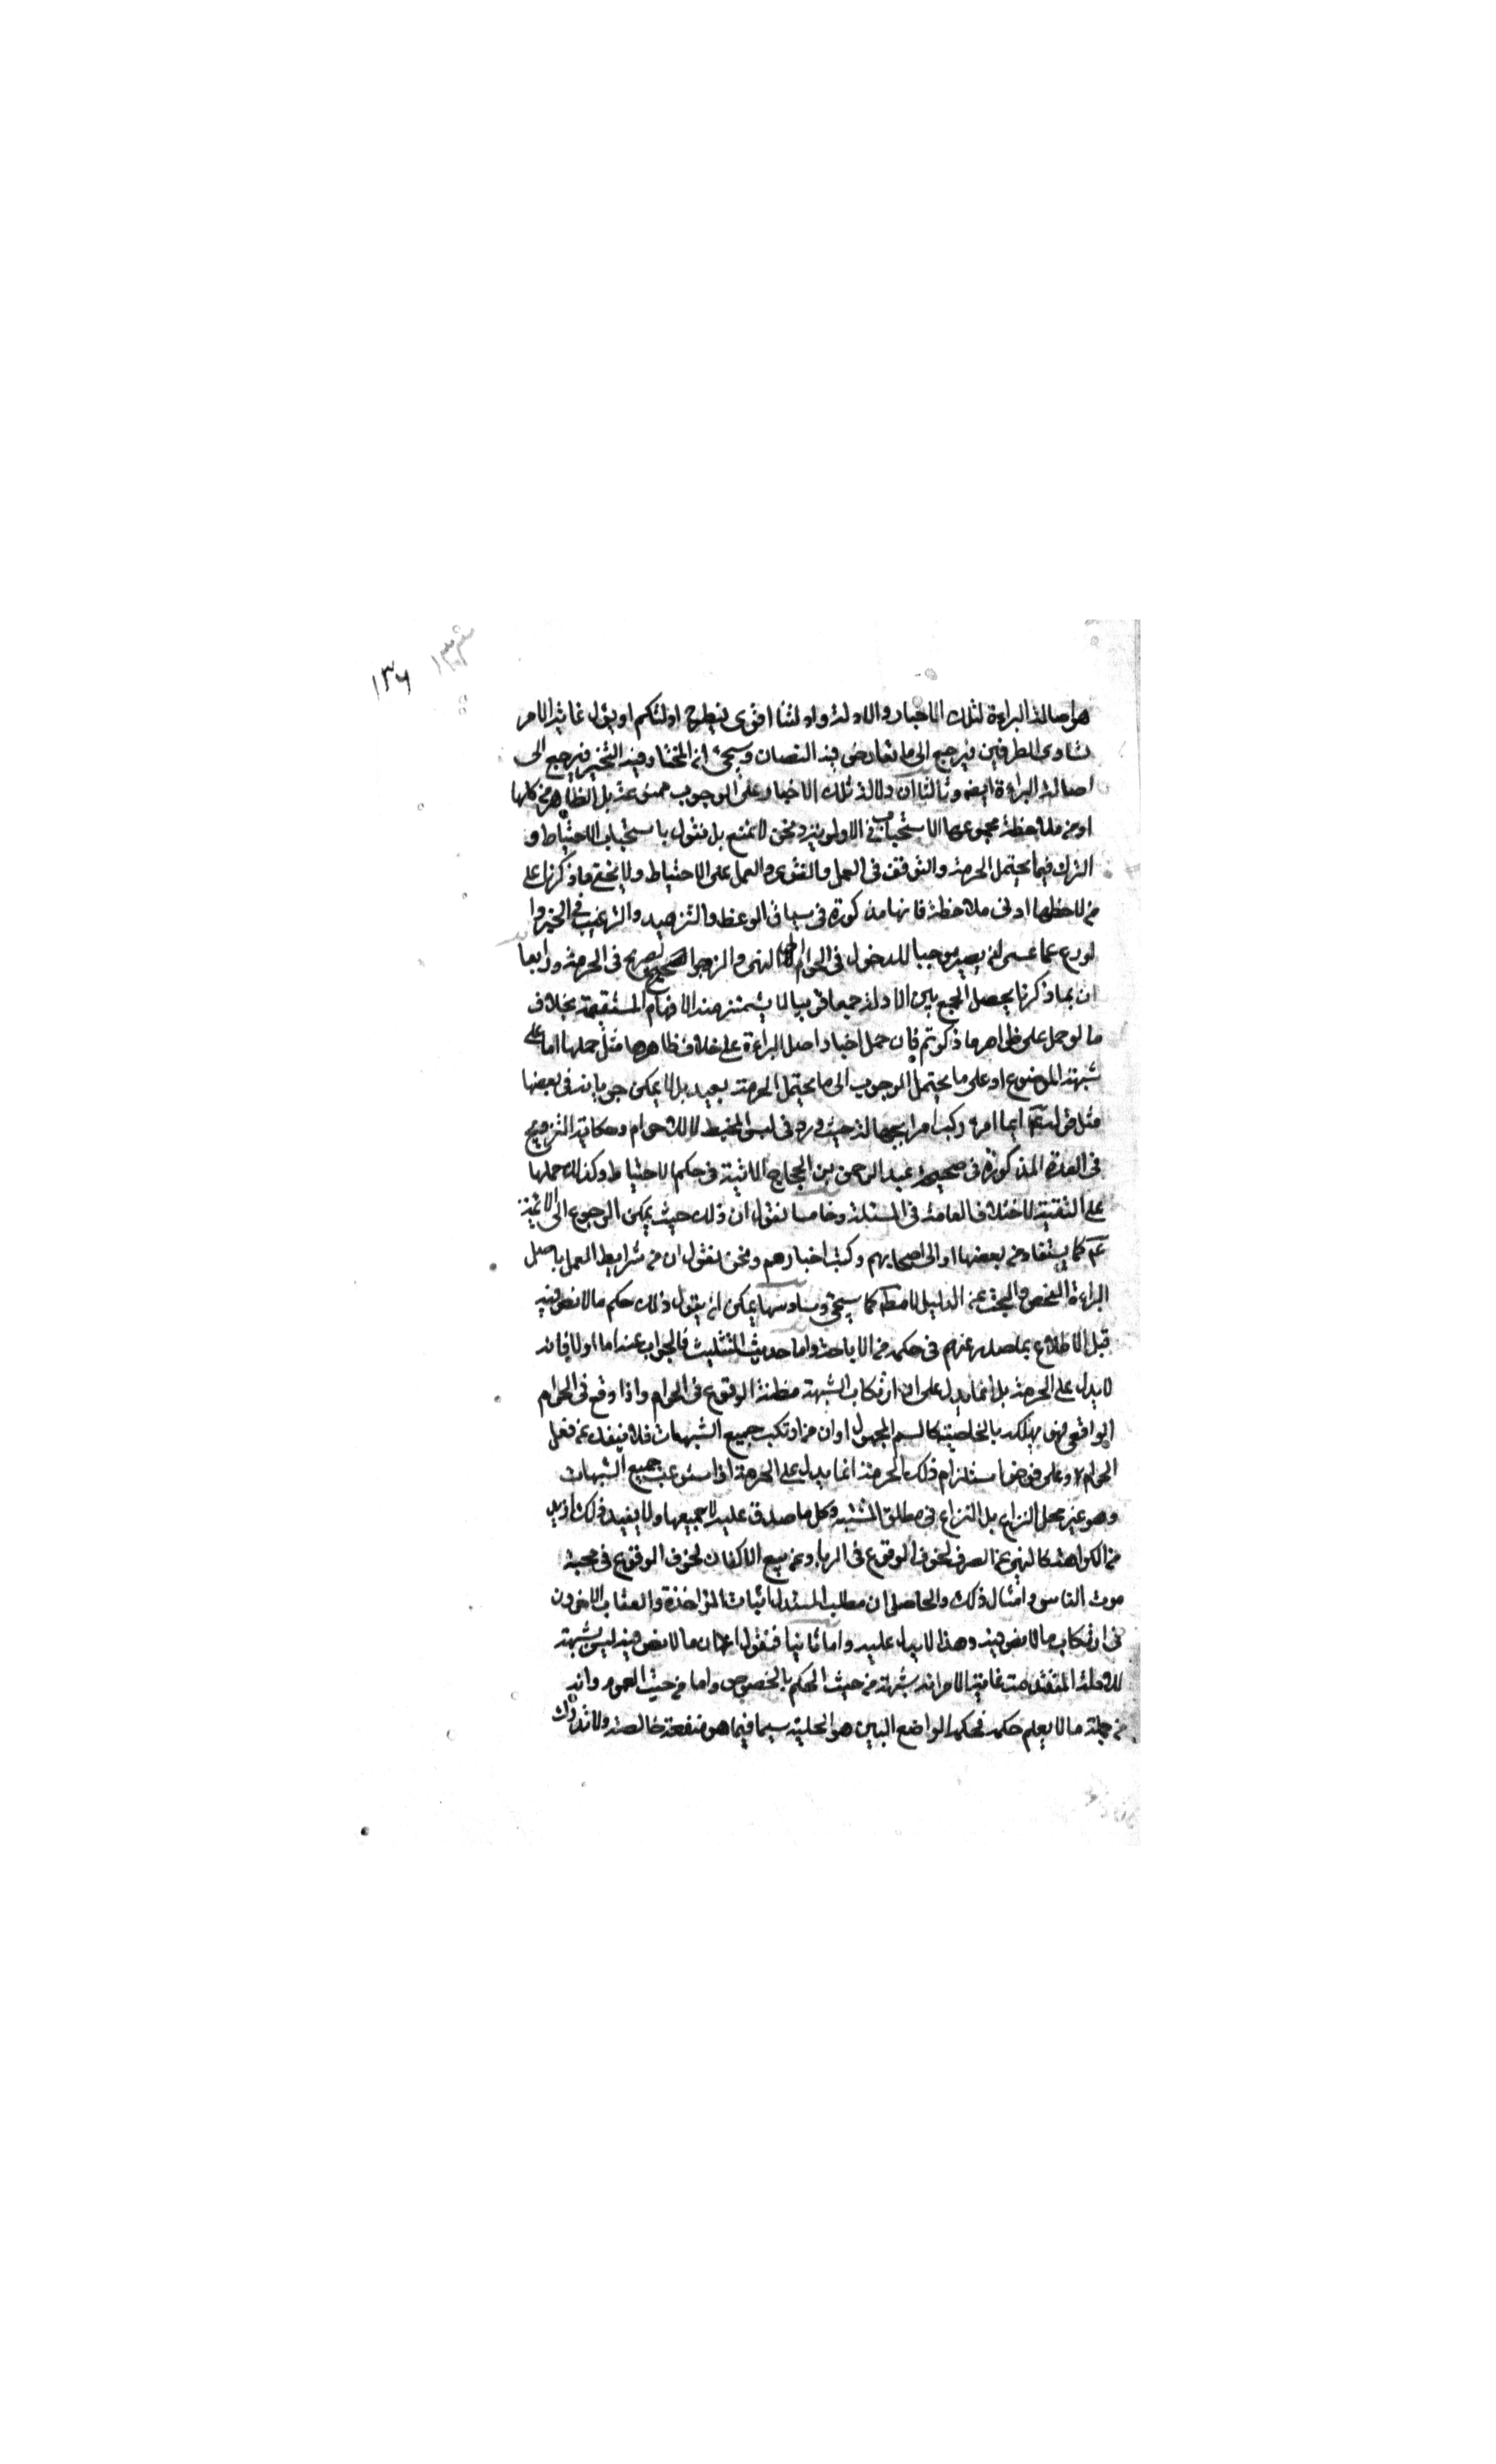 ١٣٦
هو اصالة البراءة لتلك الاخبار والادلة وادلتنا اقوى فيطرح ادلتكم او يؤل غاية الامر
تساوى الطرفين فيرجع الى ما تعارض فيه النصان وسيجئ ان المختار فيه التخيير فيرجع الى
اصالة البراءة ايضه وثالثا ان دلالة تلك الاخبار على الوجوب ممنوعة بل الظاهر من كلها
او من ملاحظة مجموعها الاستحباب الاولوية ونحن لا نمنع بل نقول باستحباب الاحتياط و
الترك فيما يحتمل الحرمة والتوقف فى العمل والفتوى والعمل على الاحتياط ولا يخفى ما ذكرنا على
من لاحظها ادنى ملاحظة فانها مذكورة فى سياق الوعظ والتزهيد والترغيب فى الخير وا
لورع عما عسى ان يصير موجبا للدخول فى الحرام لا النهى والزجر الصريح فى الحرمة ورابعا
ان بما ذكرنا يحصل الجمع بين الادلة جمعا قريبا لا يشمئز منه الافهام المستقيمة بخلاف
ما لو حمل على ظواهر ما ذكرتم فان حمل اخبار اصل البراءة على خلاف ظاهرها مثل حملها اما على
شبهة الموضوع او على ما يحتمل الوجوب الى ما يحتمل الحرمة بعيد بل لا يمكن جريانه فى بعضها
مثل قوله عم ايما امرء ركب امرا بجهالة حيث ورد فى لبس المخيط للاحرام وحكاية التزويج
فى العدة المذكورة فى صحيحة عبد الرحمن بن الحجاج الاتية فى حكم الاحتياط وكذلك حملها
على التقية لاختلاف العامة فى المسئلة وخامسا نقول ان ذلك حيث يمكن الرجوع الى الائمة
عم كما يستفاد من بعضها او الى اصحابهم وكتب اخبارهم ونحن نقول ان من شرايط العمل باصل
البراءة الفحص والبحث عن الدليل لا مطه كما سيجئ وسادسها يمكن ان يقول ذلك حكم ما لا نص فيه
قبل الاطلاع بما صدر عنهم فى حكمه من الاباحة واما حديث التثليث فالجواب عنه اما اولا فانه
لا يدل على الحرمة بل انما يدل على ان ارتكاب الشبهة مظنة الوقوع فى الحرام واذا وقع فى الحرام
الواقعى فهى يهلكه بالخاصية كالسم المجهول او ان من ارتكب جميع الشبهات فلا ينفك عن فعل
الحرام وعلى فرض استلزام ذلك الحرمة انما يدل على الحرمة اذا استوعب جميع الشبهات
وهو غير محل النزاع بل النزاع فى مطلق المشتبه وكل ما صدق عليه لا جميعها ولا يفيد ذلك ازيد
من الكراهة كالنهى عن الصرف لخوف الوقوع فى الربا وعن بيع الاكفان لخوف الوقوع فى محبة
موت الناس وامثال ذلك والحاصل ان مطلب المستدل اثبات المؤاخذة والعقاب الاخروى
فى ارتكاب ما لا نص فيه وهذا لا يدل عليه واما ثانيا فنقول ان ما لا نص فيه ليس بشبهة
للادلة المتقدمة غاية الامر انه شبهة من حيث الحكم بالخصوص واما من حيث العموم وانه
من جملة ما لا يعلم حكمه فحكمه الواضح البين هو الحلية سيما فيما هو منفعة خالصة ولا